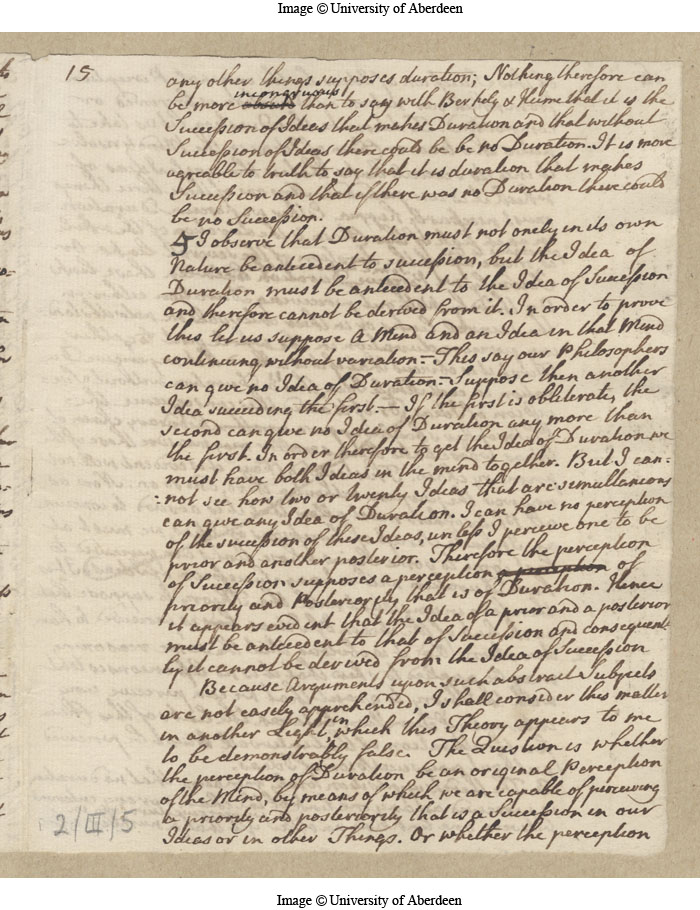 Image © University of Aberdeen
15
any other things supposes duration; Nothing therefore can
incongruous
be more absurd than to say with Berkely & Hume that it is the
Succession of Ideas that makes Duration and that without
Succession of Ideas there could be be no Duration. It is more
agreable to truth to say that it is duration that makes
Succession and that if there was no Duration there could
be no Succession.
5 I observe that Duration must not onely in its own
Nature be antecedent to succession, but the Idea of
Duration must be antecedent to the Idea of Succession
and therefore cannot be derived from it. In order to prove
this let us suppose A Mind and an Idea in that Mind
continuing without variation.— This say our Philosophers
can give no Idea of Duration.— Suppose then another
Idea succeeding the first.— If the first is obliterate, the
second can give no Idea of Duration any more than
the first. In order therefore to get the Idea of Duration we
must have both Ideas in the mind together. But I can-
:not see how two or twenty Ideas that are simultaneous
can give any Idea of Duration. I can have no perception
of the succession of these Ideas, unless I perceive one to be
prior and another posterior. Therefore the perception
of Succession supposes a perception a perception of
priority and Posteriority that is of Duration. Hence
it appears evident that the Idea of a prior and a posterior
must be antecedent to that of Succession and consequent-
ly it cannot be derived from the Idea of Succession
Because Arguments upon such abstract Subjects
are not easily apprehended, I shall consider this matter
in
in another Light, which this Theory appears to me
to be demonstrably false. The Question is whether
the perception of Duration be an original Perception
of the Mind, by means of which we are capable of perceiving
a priority and posteriority that is a Succession in our
Ideas or in other Things. Or whether the perception
2/III/5
Image © University of Aberdeen